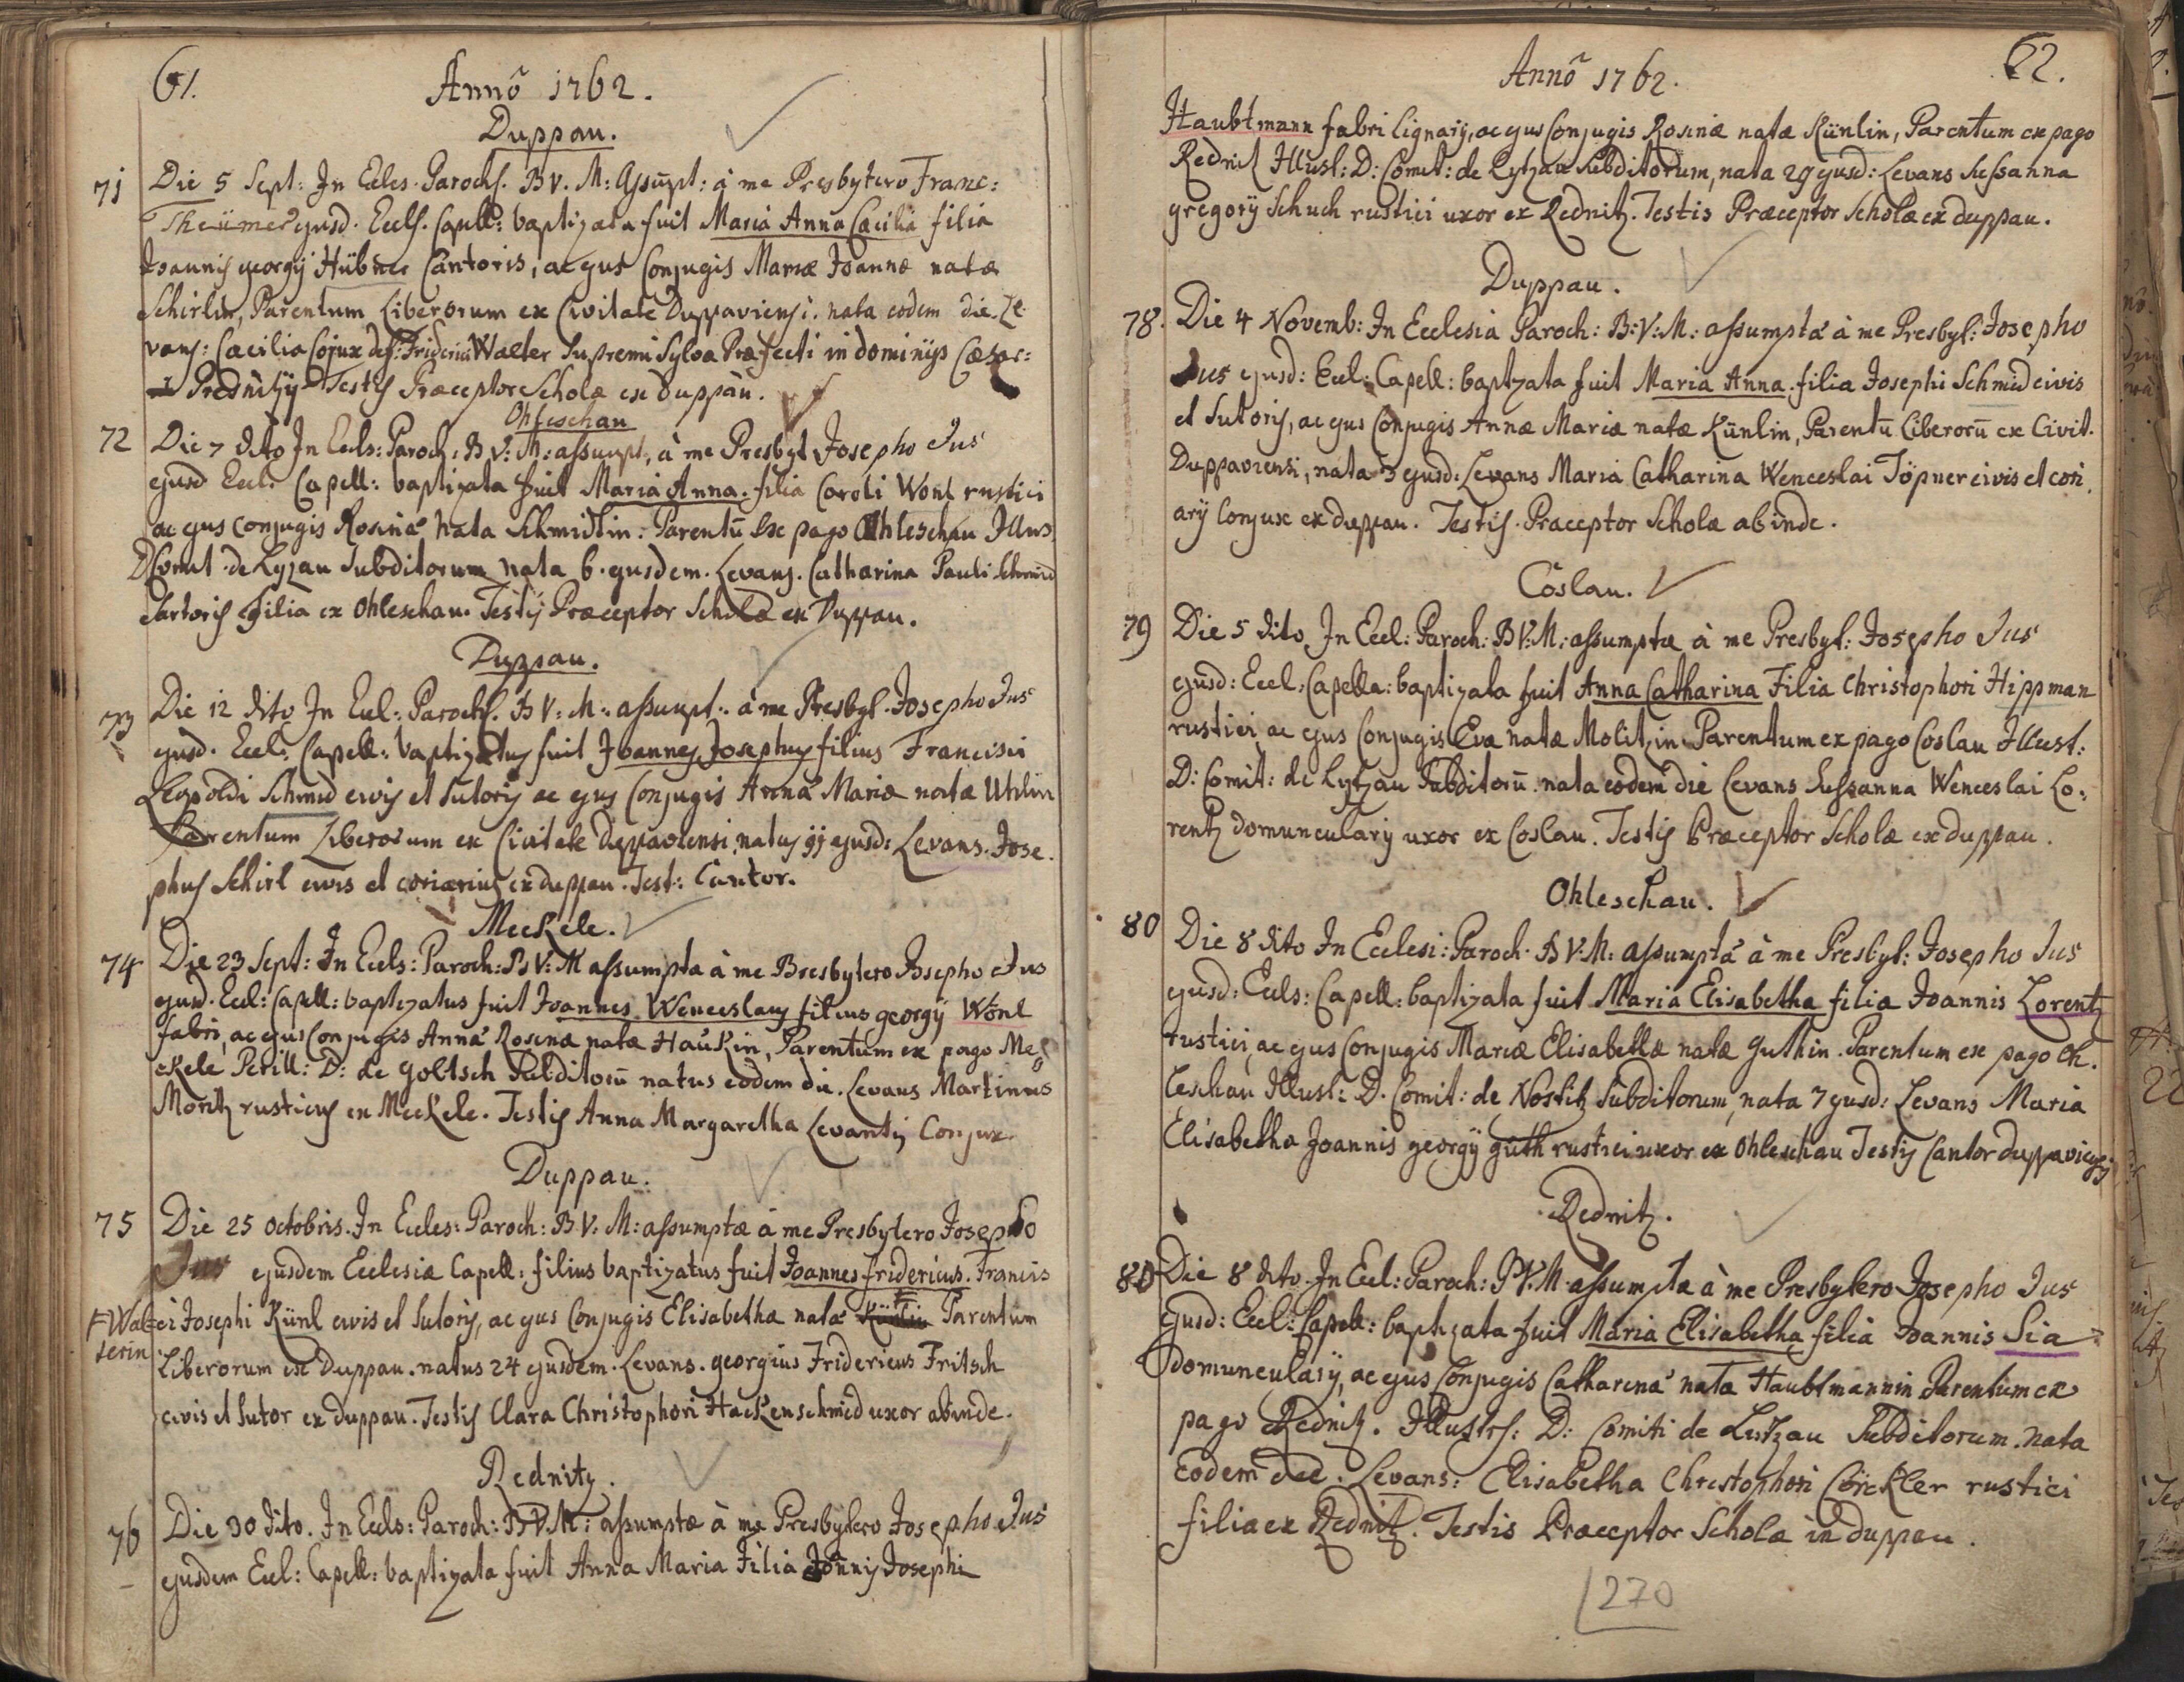 61.
Anno 1762.
Duppau.
71 Die 5 Sept: In Eccles. Paroch. B V. M: Assupt: à me Presbytero Franc:
Theümer ejusd. Eccls. Capell: baptizata fuit Maria Anna Cæcilia filia
Joannis georgÿ Hübner Cantoris, ac ejus Conjugis Mariæ Joannæ natæ
Schirlin, Parentum Liberorum ex Civitate Duppaviensi. nata eodem die. Le-
vans: Cæcilia Cojux def: Friderici Walter Supremi Sylvæ Præfecti in dominÿs Cæsar:
Testis Præceptor Scholæ ex duppau.
Ohleschau
72 Die 7 dito In Eccls: Paroch: B V: M: assumpt, à me Presbyt Josepho Jus
ejusd Eccl: Capell: baptizata fuit Maria Anna. filia Caroli Wonl rustici
ac ejus conjugis Rosinæ nata Schmidlin. Parentu Ex pago Ohleschau Illus.
D Comit de Lyzau Subditorum nata 6. ejusdem. Levans. Catharina Pauli Schmied
Sartoris filia ex Ohleschau. Testis Præceptor Scholæ ex Duppau.
Duppau.
73 Die 12 dito In Eccl: Paroch. B V: M: assumpt: à me Presbyt. Josepho Jus
ejusd. Eccl: Capell: baptizatus fuit Joannes Josephus filius Francisci
Leopoldi Schmid civis et Sutoris ac ejus Conjugis Annæ Mariæ natæ Uhlin
Parentum Liberorum ex Civitate duppaviensi, natus 11 ejusd: Levans. Jose-
phus Schirl civis et coriarius ex duppau. Test: Cantor.
Meckele.
74 Die 23 Sept: In Eccls: Paroch: B V: M assumpta à me Presbytero Josepho Jus
ejusd. Eccl: Capell: baptizatus fuit Joannes Wenceslaus filius georgÿ Wonl
fabri, ac ejus Conjugis Annæ Rosinæ natæ Haukin, Parentum ex pago Me-
ckele Perill: D: de goltsch Subditoru natus eodem die. Levans Martinus
Moritz rusticus ex Meckele. Testis Anna Margaretha Levantis Conjux.
Duppau.
75 Die 25 octobris. In Eccles: Paroch: B V: M: assumptæ à me Presbytero Josepho
Jus ejusdem Ecclesiæ Capell: filius baptizatus fuit Joannes fridericus. Francis
ci Josephi Künl civis et Sutoris, ac ejus Conjugis Elisabethæ natæ Künlin Parentum
Walterin
Liberorum ex Duppau. natus 24 ejusdem. Levans. georgius Fridericus Fritsch
civis et sutor ex duppau. Testis Clara Christophori Hackenschmid uxor abinde.
Rednitz.
76 Die 30 dito. In Eccls: Paroch: B V. M: assumptæ à me Presbytero Josepho Jus
ejusdem Eccl: Capell: baptizata fuit Anna Maria Filia Joannis Josephi
62.
Anno 1762.
Haubtmann fabri lignarÿ, ac ejus Conjugis Rosinæ natæ Künlin, Parentum ex pago
Rednitz Illust: D: Comit: de Lytzau Subditorum, nata 29 ejusd: Levans Sussanna
gregorÿ Schuch rustici uxor ex Rednitz. Testis Præceptor Scholæ ex duppau.
Duppau.
78. Die 4 Novemb: In Ecclesia Paroch: B: V: M: assumptæ à me Presbyt: Josepho
Jus ejusd: Eccl: Capell: baptzata fuit Maria Anna. filia Josephi Schmid civis
et Sutoris, ac ejus Conjugis Annæ Mariæ natæ Künlin, Parentu Liberoru ex Civit.
Duppaviensi, nata 3 ejusd: Levans Maria Catharina Wenceslai Töpner civis et cori
arÿ Conjux ex duppau. Testis. Præceptor Scholæ abinde.
Coslau.
79 Die 5 dito In Eccl: Paroch: B V: M: assumptæ à me Presbyt: Josepho Jus
ejusd: Eccl: Capella: baptizata fuit Anna Catharina Filia Christophori Hippman
rustici ac ejus Conjugis Eva natæ Molitzin Parentum ex pago Coslau Illust:
D: Comit: de Lytzau Subditoru. nata eodem die Levans Sussanna Wenceslai Lo-
rentz domuncularÿ uxor ex Coslau. Testis Præceptor Scholæ ex duppau.
Ohleschau.
80 Die 8 dito In Ecclesi: Paroch. B V: M: assumptæ à me Presbyt: Josepho Jus
ejusd: Eccls: Capell: baptizata fuit Maria Elisabetha filia Joannis Lorentz
rustici, ac ejus Conjugis Mariæ Elisabethæ natæ Guthin. Parentum ex pago Oh-
leschau Illust: D. Comit: de Nostitz Subditorum, nata 7 ejusd: Levans Maria
Elisabetha Joannis georgÿ guth rustici uxor ex Ohleschau Testis Cantor duppaviensis
Rednitz.
80 Die 8 dito. In Eccl: Paroch: B V: M assumptæ à me Presbytero Josepho Jus
ejusd: Eccl: Capell: baptizata fuit Maria Elisabetha filia Joannis Sia
domuncularÿ, ac ejus Conjugis Catharinæ nata Haubtmannin Parentum ex
pago Rednitz. Illustrs: D: Comiti de Lutzau Subditorum. nata
eodem die. Levans: Elisabetha Christophori Corckler rustici
filia ex Rednitz. Testis Præceptor Scholæ in duppau.
270